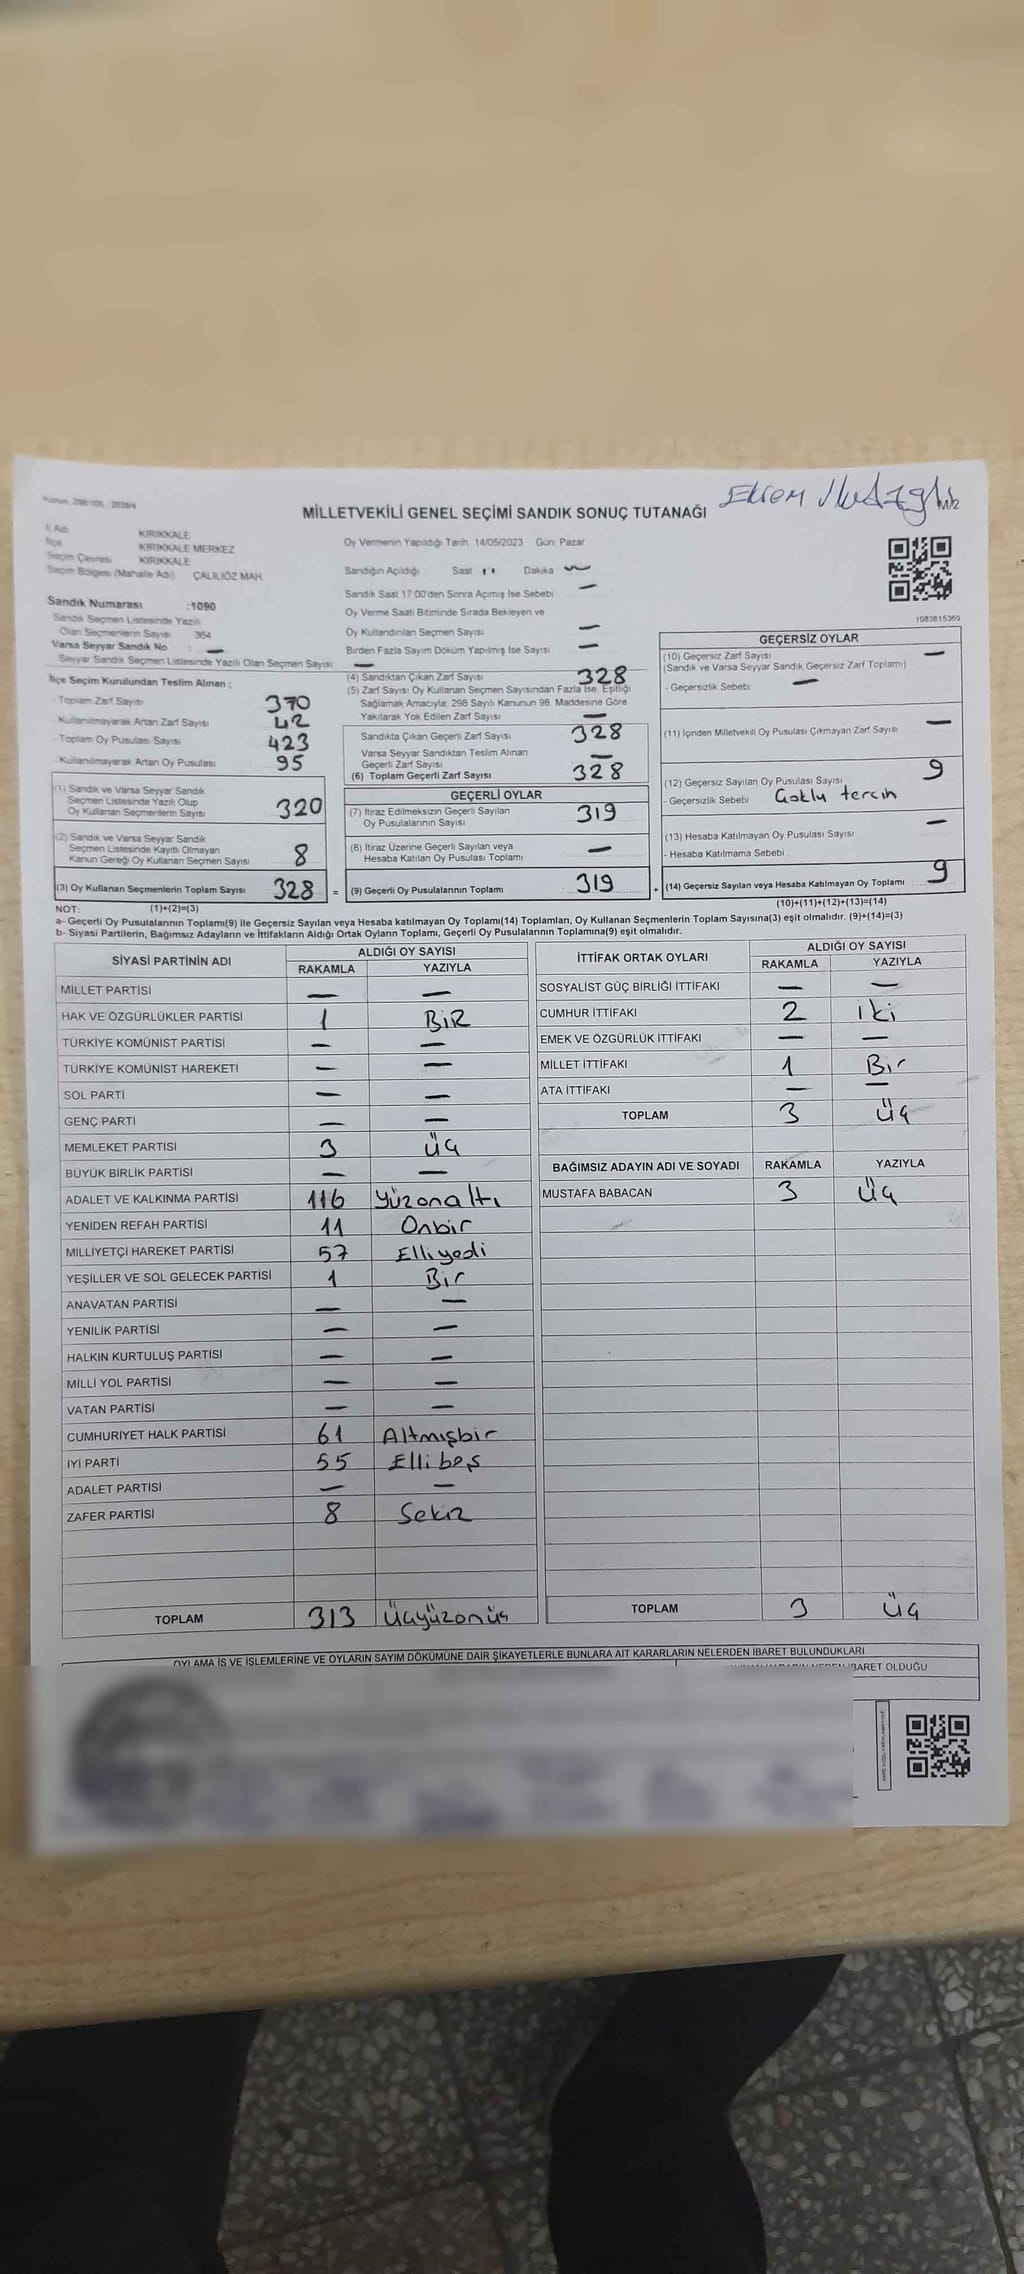 MİLLETVEKİLİ GENEL SEÇİMİ SANDIK SONUÇ TUTANAĞI
Ekrem
İl Adı KIRIKKALE
İlçe KIRIKKALE MERKEZ
Seçim Çevresi KIRIKKALE
Seçim Bölgesi (Mahalle Adı) ÇALILIÖZ MAH.
Sandık Numarası :1090
Sandık Seçmen Listesinde Yazılı
Olan Seçmenlerin Sayısı 364
Varsa Seyyar Sandık No : —
Seyyar Sandık Seçmen Listesinde Yazılı Olan Seçmen Sayısı: —
Oy Vermenin Yapıldığı Tarih 14/05/2023 Gün: Pazar
Sandığın Açıldığı Saat Dakika
Sandık Saat 17:00'den Sonra Açımış İse Sebebi —
Oy Verme Saati Bitiminde Sırada Bekleyen ve
Oy Kullandırılan Seçmen Sayısı —
Birden Fazla Sayım Döküm Yapılmış İse Sayısı —
1083615369
İlçe Seçim Kurulundan Teslim Alınan ;
- Toplam Zarf Sayısı 370
- Kullanılmayarak Artan Zarf Sayısı 42
- Toplam Oy Pusulası Sayısı 423
- Kullanılmayarak Artan Oy Pusulası 95
(1) Sandık ve Varsa Seyyar Sandık
Seçmen Listesinde Yazılı Olup
Oy Kullanan Seçmenlerin Sayısı 320
(2) Sandık ve Varsa Seyyar Sandık
Seçmen Listesinde Kayıtlı Olmayan
Kanun Gereği Oy Kullanan Seçmen Sayısı 8
(3) Oy Kullanan Seçmenlerin Toplam Sayısı 328 =
(4) Sandıktan Çıkan Zarf Sayısı 328
(5) Zarf Sayısı Oy Kullanan Seçmen Sayısından Fazla İse, Eşitliği
Sağlamak Amacıyla, 298 Sayılı Kanunun 98. Maddesine Göre
Yakılarak Yok Edilen Zarf Sayısı —
Sandıkta Çıkan Geçerli Zarf Sayısı 328
Varsa Seyyar Sandıktan Teslim Alınan
Geçerli Zarf Sayısı —
(6) Toplam Geçerli Zarf Sayısı 328
GEÇERLİ OYLAR
(7) İtiraz Edilmeksizin Geçerli Sayılan
Oy Pusulalarının Sayısı 319
(8) İtiraz Üzerine Geçerli Sayılan veya
Hesaba Katılan Oy Pusulası Toplamı —
(9) Geçerli Oy Pusulalarının Toplamı 319 +
GEÇERSİZ OYLAR
(10) Geçersiz Zarf Sayısı —
(Sandık ve Varsa Seyyar Sandık Geçersiz Zarf Toplamı)
- Geçersizlik Sebebi —
(11) İçinden Milletvekili Oy Pusulası Çıkmayan Zarf Sayısı —
(12) Geçersiz Sayılan Oy Pusulası Sayısı 9
- Geçersizlik Sebebi Çoklu tercih
(13) Hesaba Katılmayan Oy Pusulası Sayısı —
- Hesaba Katılmama Sebebi
(14) Geçersiz Sayılan veya Hesaba Katılmayan Oy Toplamı 9
NOT: (1)+(2)=(3) (10)+(11)+(12)+(13)=(14)
a- Geçerli Oy Pusulalarının Toplamı(9) ile Geçersiz Sayılan veya Hesaba katılmayan Oy Toplamı(14) Toplamları, Oy Kullanan Seçmenlerin Toplam Sayısına(3) eşit olmalıdır. (9)+(14)=(3)
b- Siyasi Partilerin, Bağımsız Adayların ve İttifakların Aldığı Ortak Oyların Toplamı, Geçerli Oy Pusulalarının Toplamına(9) eşit olmalıdır.
SİYASİ PARTİNİN ADI ALDIĞI OY SAYISI
RAKAMLA YAZIYLA
MİLLET PARTİSİ — —
HAK VE ÖZGÜRLÜKLER PARTİSİ 1 BİR
TÜRKİYE KOMÜNİST PARTİSİ — —
TÜRKİYE KOMÜNİST HAREKETİ — —
SOL PARTİ — —
GENÇ PARTİ — —
MEMLEKET PARTİSİ 3 üç
BÜYÜK BİRLİK PARTİSİ — —
ADALET VE KALKINMA PARTİSİ 116 Yüzonaltı
YENİDEN REFAH PARTİSİ 11 Onbir
MİLLİYETÇİ HAREKET PARTİSİ 57 Elliyedi
YEŞİLLER VE SOL GELECEK PARTİSİ 1 Bir
ANAVATAN PARTİSİ — —
YENİLİK PARTİSİ — —
HALKIN KURTULUŞ PARTİSİ — —
MİLLİ YOL PARTİSİ — —
VATAN PARTİSİ — —
CUMHURİYET HALK PARTİSİ 61 Altmışbir
İYİ PARTİ 55 Ellibeş
ADALET PARTİSİ — —
ZAFER PARTİSİ 8 Sekiz
TOPLAM 313 Üçyüzonüç
İTTİFAK ORTAK OYLARI ALDIĞI OY SAYISI
RAKAMLA YAZIYLA
SOSYALİST GÜÇ BİRLİĞİ İTTİFAKI — —
CUMHUR İTTİFAKI 2 iki
EMEK VE ÖZGÜRLÜK İTTİFAKI — —
MİLLET İTTİFAKI 1 Bir
ATA İTTİFAKI — —
TOPLAM 3 üç
BAĞIMSIZ ADAYIN ADI VE SOYADI RAKAMLA YAZIYLA
MUSTAFA BABACAN 3 üç
TOPLAM 3 üç
OYLAMA İŞ VE İŞLEMLERİNE VE OYLARIN SAYIM DÖKÜMÜNE DAİR ŞİKAYETLERLE BUNLARA AİT KARARLARIN NELERDEN İBARET BULUNDUKLARI
İBARET OLDUĞU